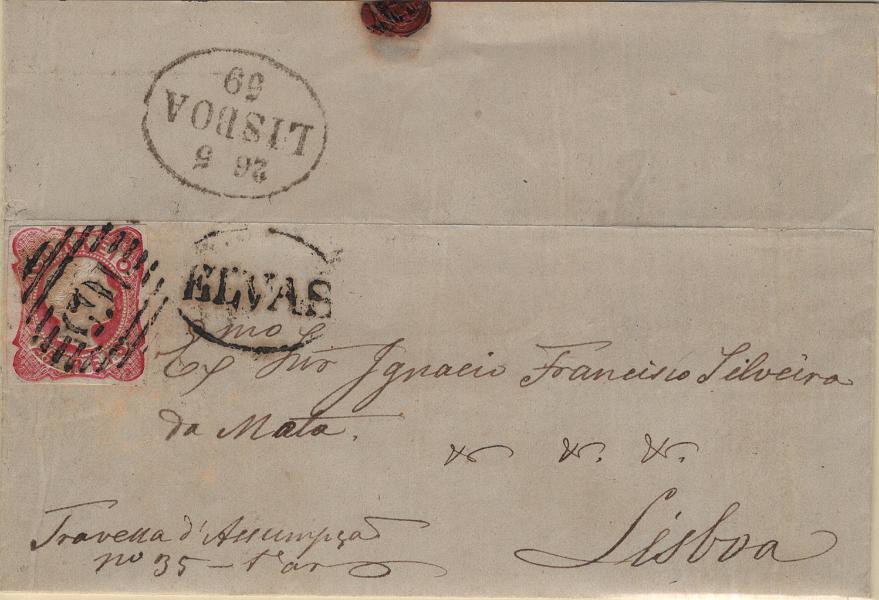 59
LISBOA
26 5
ELVAS
Exmo Snr Ignacio Francisco Silveira
da Mata.
&. &. &.
Lisboa
Travessa d'Assumpção
no 35 – 1º and